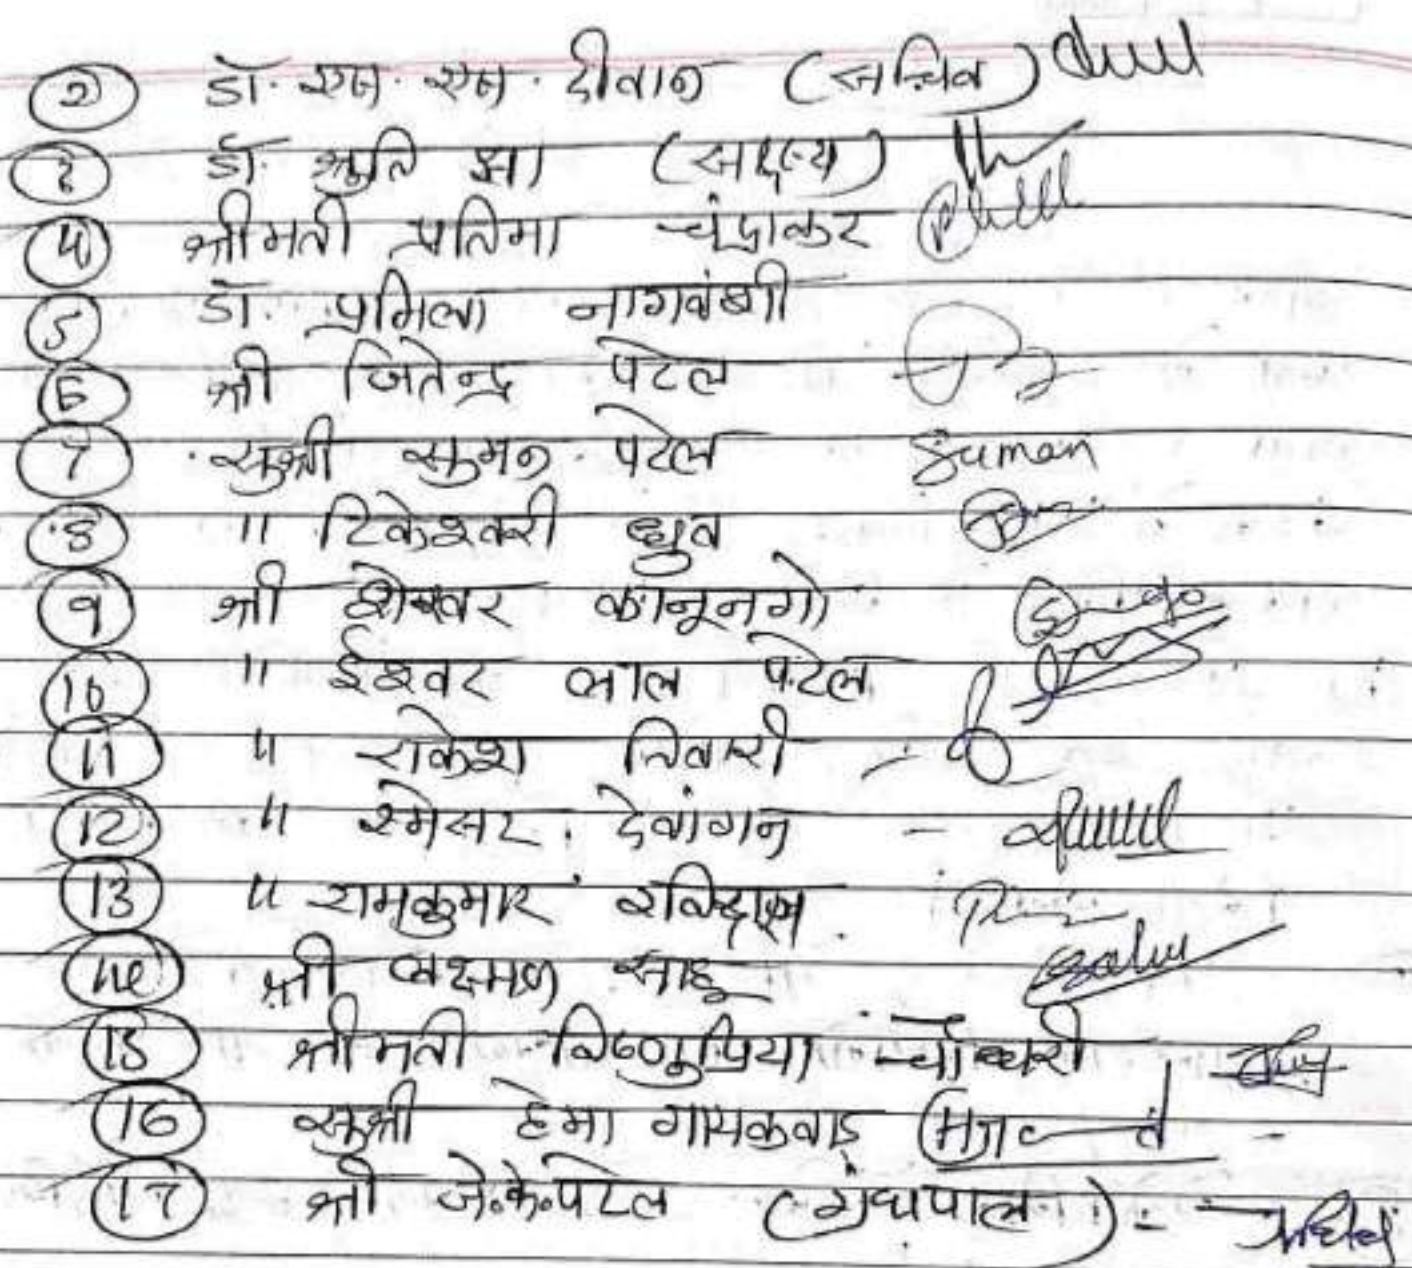 २ डॉ. एस. एस. दीवान (सचिव)
3 डॉ. श्रुति झा (सदस्य)
4 श्रीमती प्रतिमा चंद्राकर
5 डॉ. प्रमिला नागवंशी
6 श्री जितेन्द्र पटेल
7 सुश्री सुमन पटेल Suman
8 " टिकेश्वरी ध्रुव
9 श्री कानूनगो
10 " ईश्वर लाल पटेल
11 " राकेश तिवारी -
12 " देवांगन -
13 " रामकुमार
14 श्री लक्ष्मण साहू Sahu
15 श्रीमती विष्णुप्रिया चौधरी
16 सुश्री हेमा गायकवाड़
17 श्री जे.के.पटेल (ग्रंथपाल) -